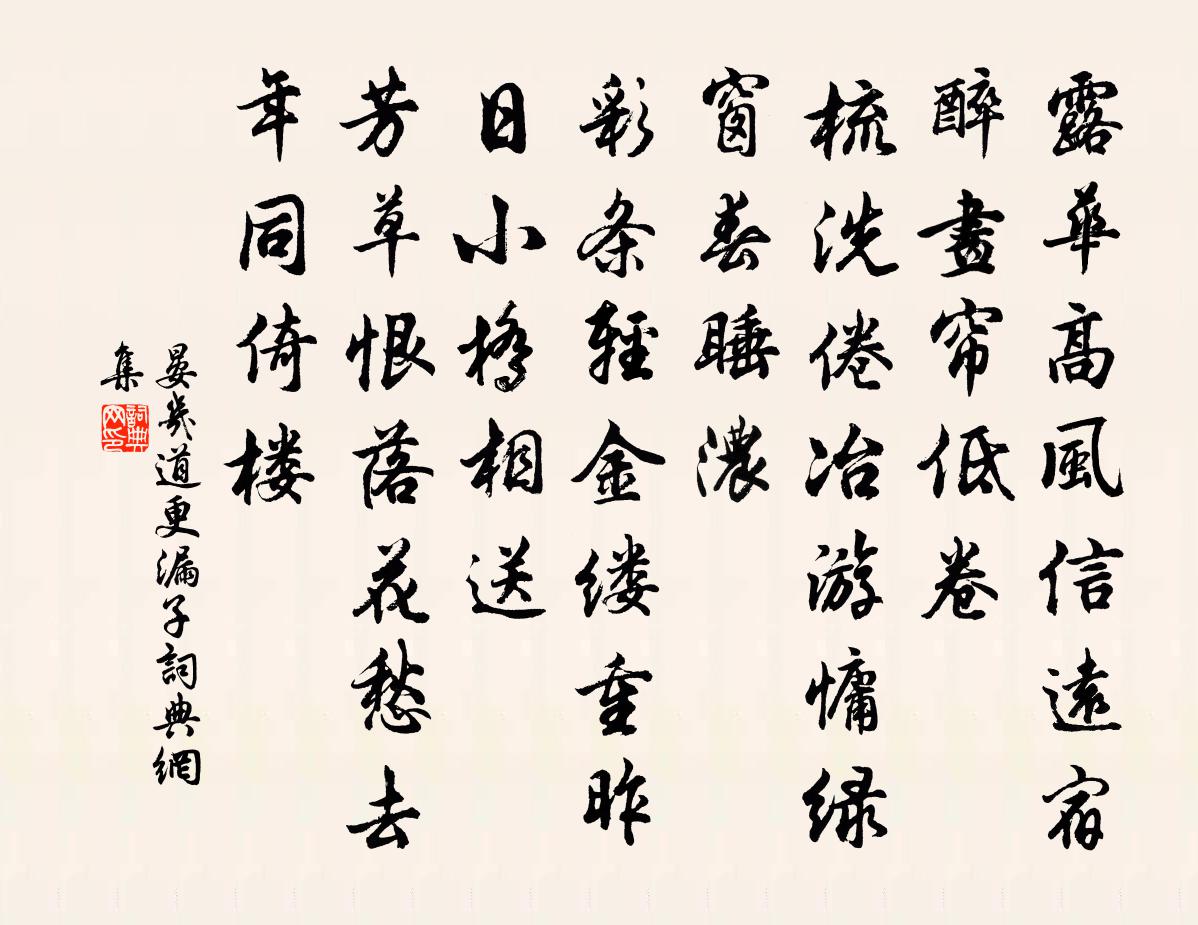 露華高風信遠宿
醉畫帘低卷
梳洗倦冶游慵绿
窗春睡濃
彩条輕金缕重昨
日小橋相送
芳草恨落花愁去
年同倚楼
晏幾道更漏子詞典網
集
詞典
网印